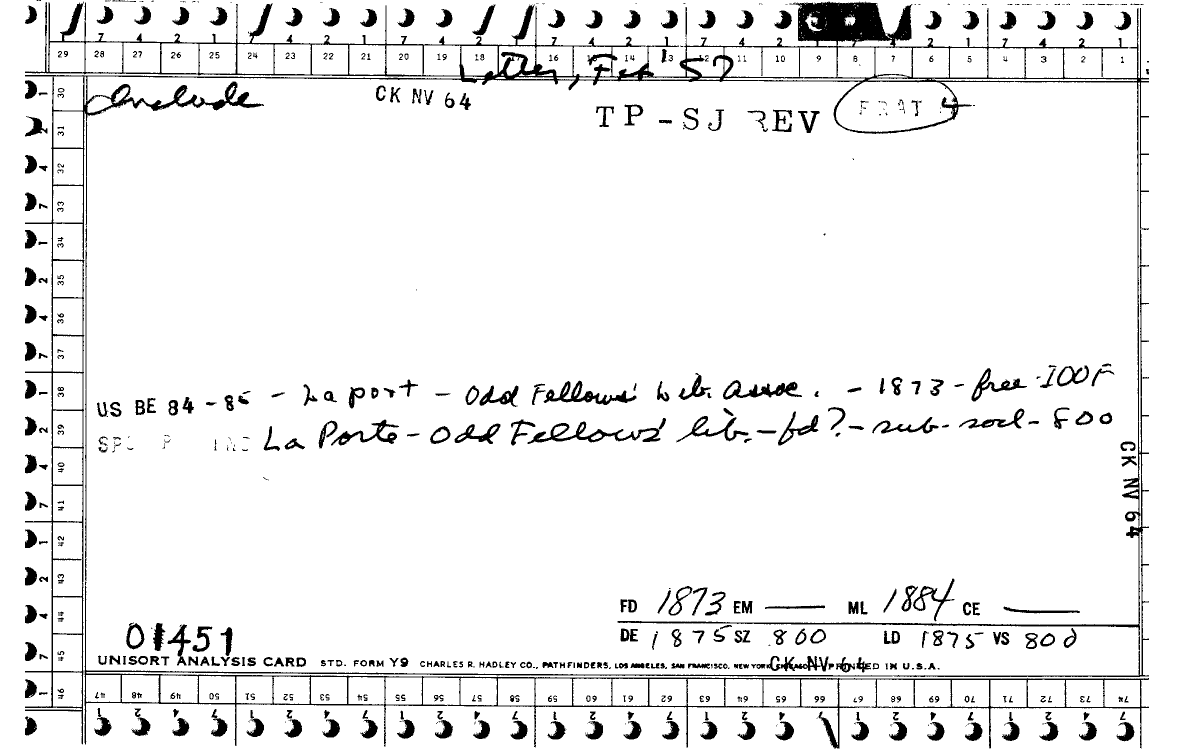 7 4 2 1 7 4 2 1 7 4 2 1 7 4 2 1 7 4 2 1
29 28 27 26 25 24 23 22 21 20 19 18 17 16 15 14 13 12 11 10 9 8 7 6 5 4 3 2 1
Letter, Feb '57
Include
CK NV 64
TP-SJ REV
FRAT 4
30 31 32 33 34 35 36 37 38 39 40 41 42 43 44 45 46
US BE 84-85 - Laport - Odd Fellows' Lib. Assoc. - 1873 - free - IOOF
La Porte - Odd Fellows' lib. - fd? - sub - socl - 800
CK NV 64
FD 1873 EM — ML 1884 CE —
DE 1875 SZ 800 LD 1875 VS 800
01451
UNISORT ANALYSIS CARD STD. FORM Y9 CHARLES R. HADLEY CO., PATHFINDERS, LOS ANGELES, SAN FRANCISCO, NEW YORK, CHICAGO PRINTED IN U.S.A.
CK NV 64
47 48 49 50 51 52 53 54 55 56 57 58 59 60 61 62 63 64 65 66 67 68 69 70 71 72 73 74